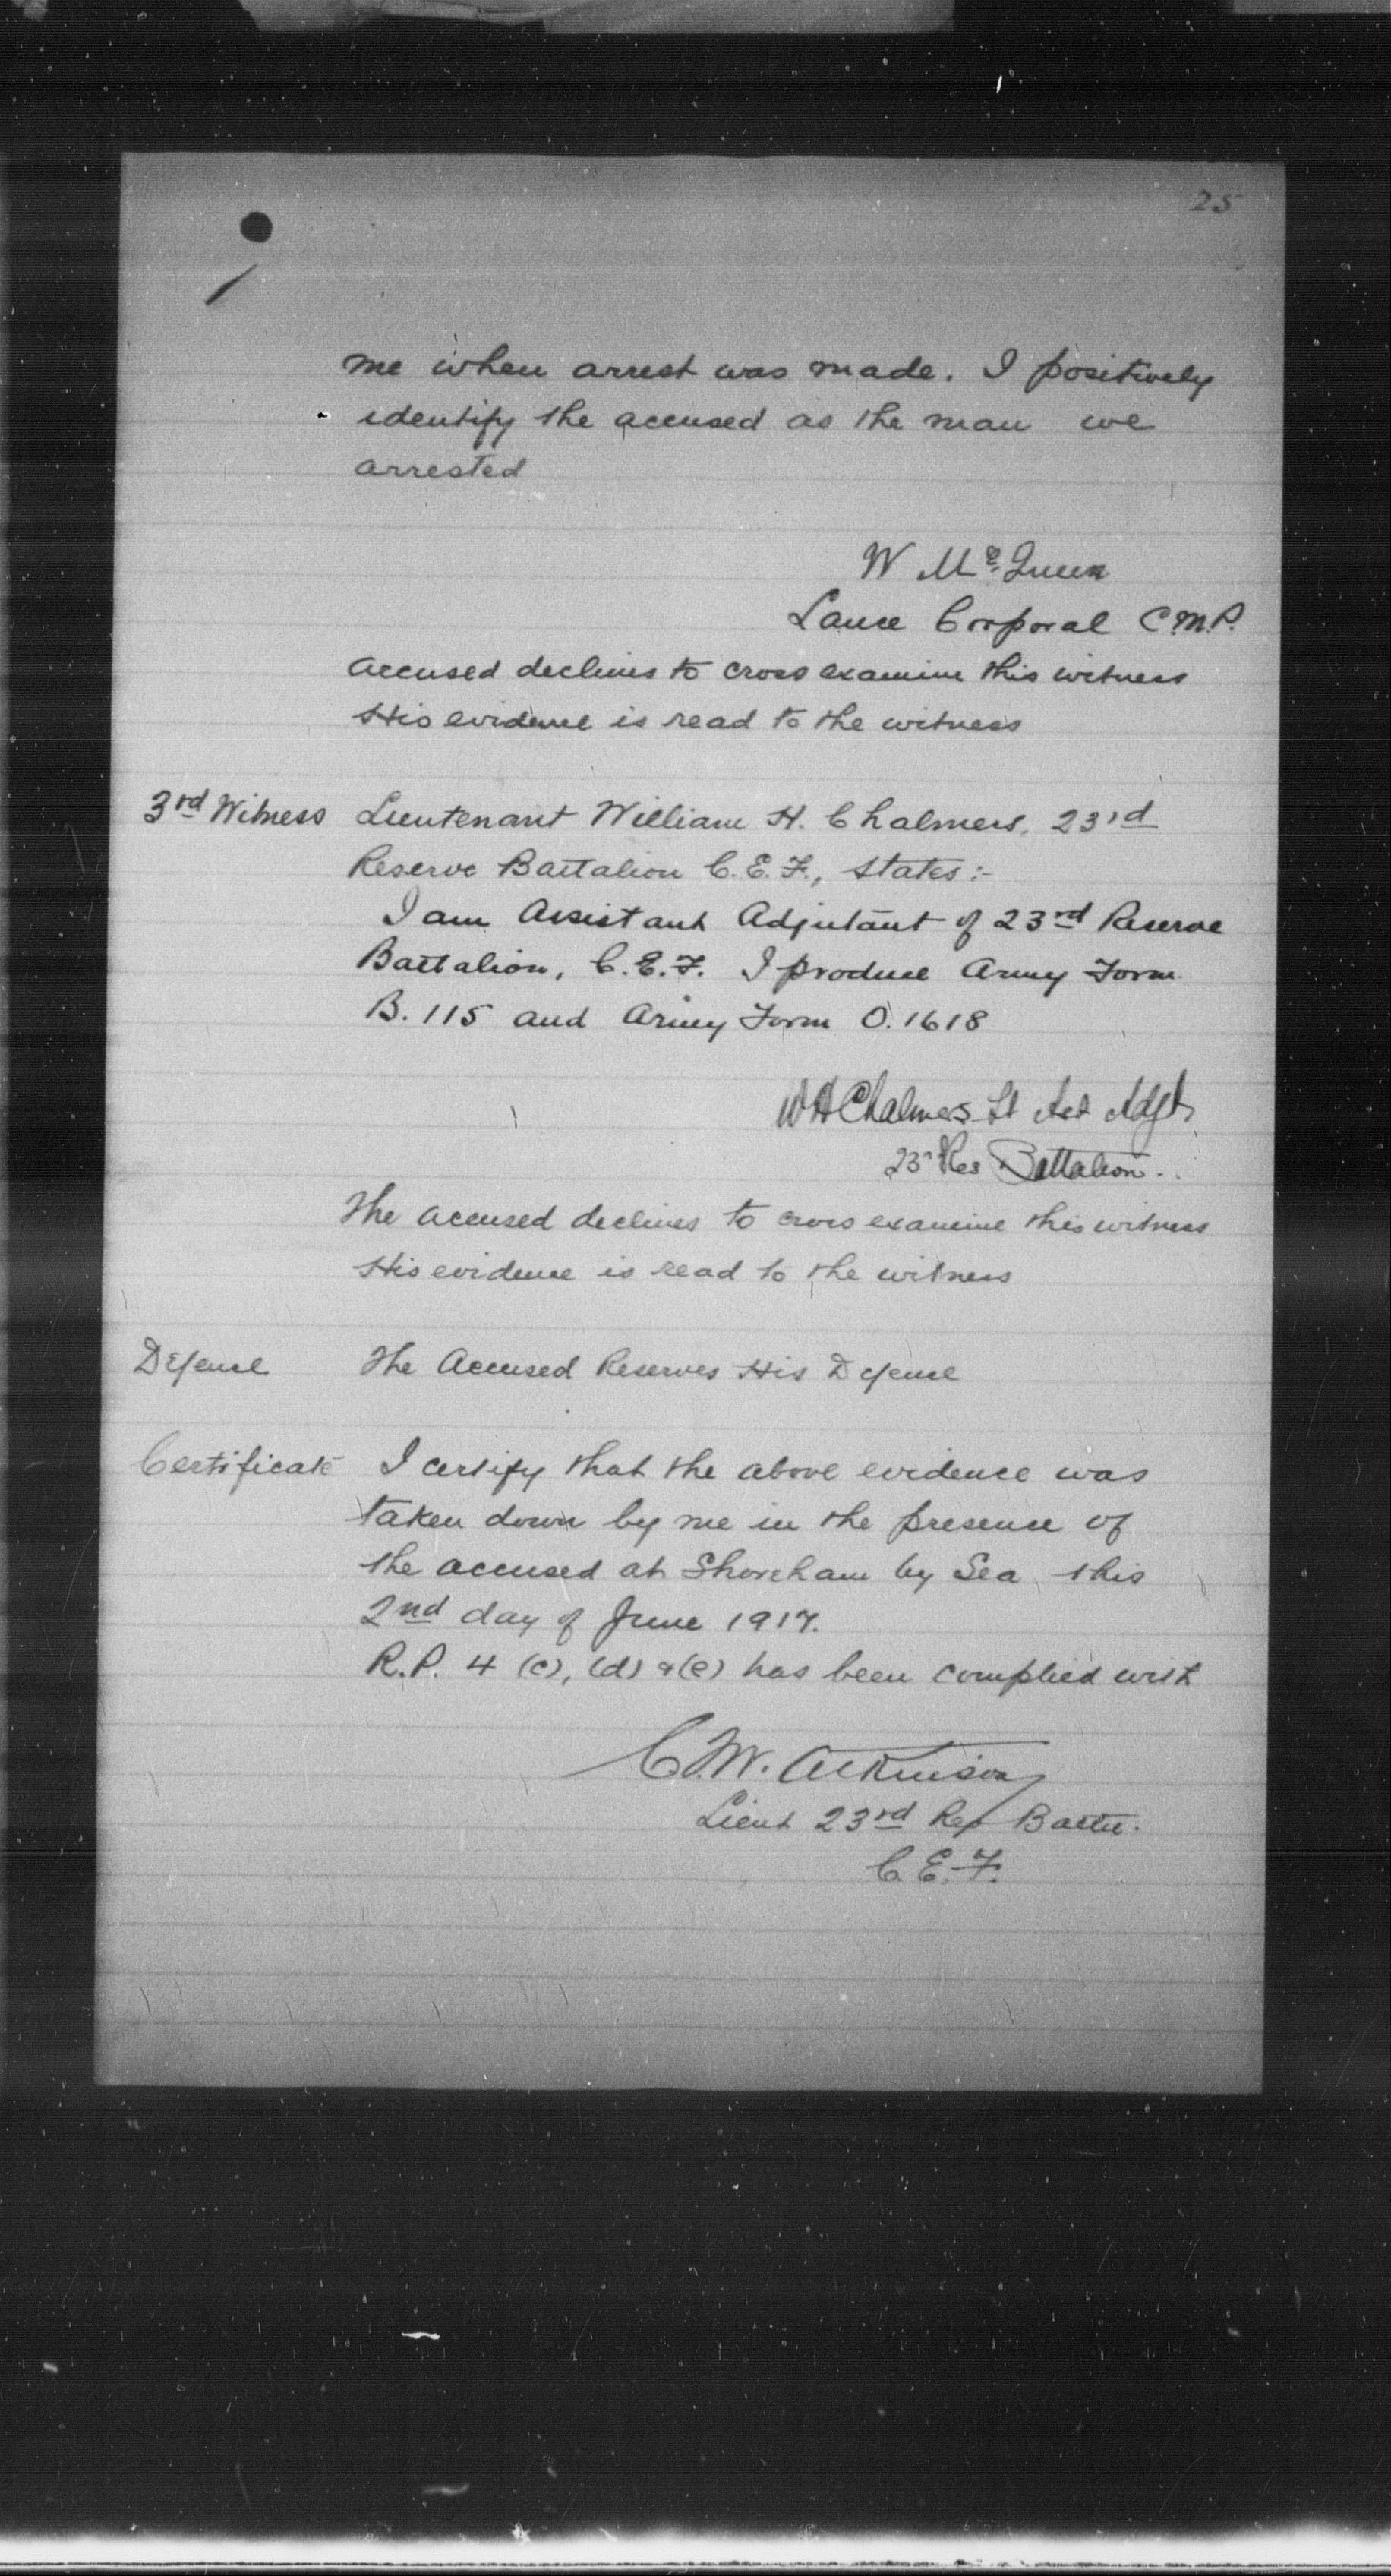 25
me when arrest was made. I positively
identify the accused as the man we
arrested
W McQueen
Lance Corporal C.M.P.
Accused declines to cross examine this witness
His evidence is read to the witness
3rd Witness Lieutenant William H. Chalmers, 23rd
Reserve Battalion C.E.F., states:-
I am Assistant Adjutant of 23rd Reserve
Battalion, C.E.F. I produce Army Form
B. 115 and Army Form O. 1618
WH Chalmers Lt Ast Adjt
23rd Res Battalion.
The accused declines to cross examine this witness
His evidence is read to the witness
Defence The Accused Reserves His Defence
Certificate I certify that the above evidence was
taken down by me in the presence of
the accused at Shoreham by Sea, this
2nd day of June 1917.
R.P. 4 (c), (d) & (e) has been complied with
C.W. Atkinson
Lieut 23rd Res Battn.
C.E.F.